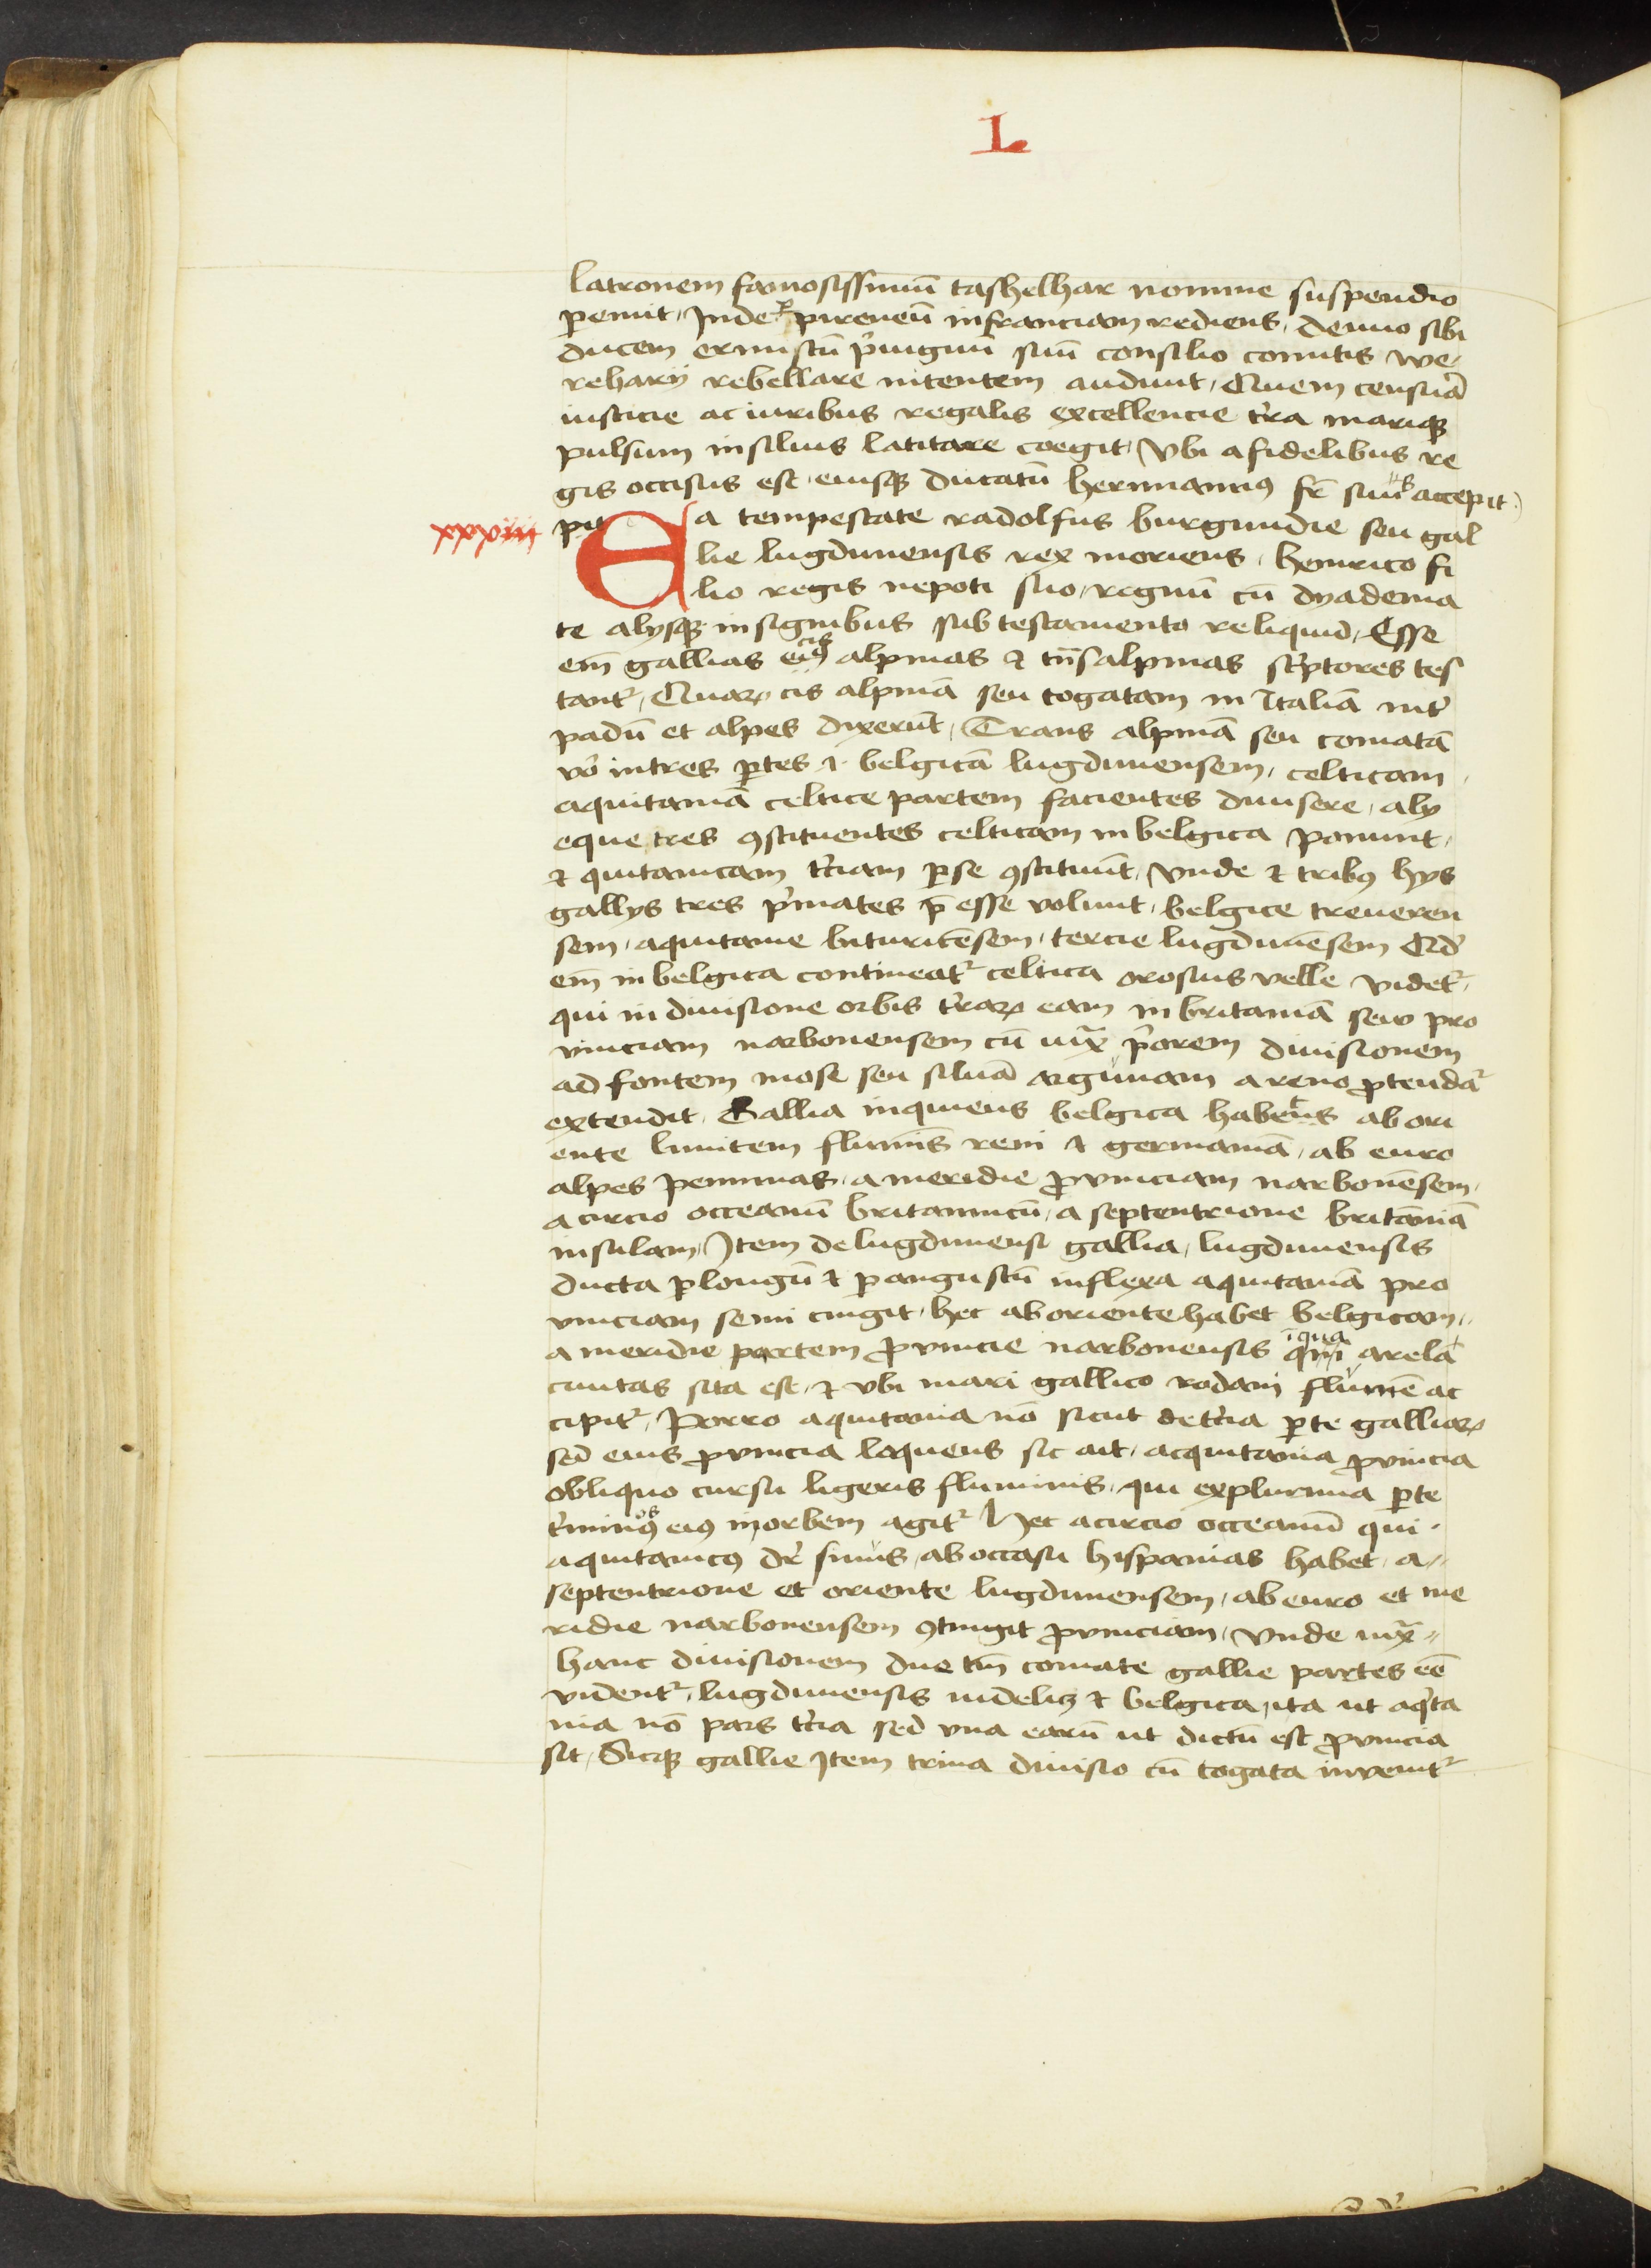 L
latronem famosissimū tashelhar nomine suspendio
pemit, Inde p̱ pireneū in franciam rediens, denuo sibi
ducem ernustū p'uignū suū consilio comitis we-
reharij rebellare nitentem audiuit, Quem censurā
iusticie ac iuribus regalis excellencie t'ra mariqʒ
pulsum in siluis latitare coegit, Vbi a fidelibus re
gis occisus est, eiusqʒ ducatū hermannꝰ fr̄ suus accepit.
xxxdiii pit
Ea tempestate radolfus burgundie seu gal
lie lugdunensis rex moriens, heinrico fi
lio regis nepoti suo, regnū cū dyadema
te alysqʒ insignibus sub testamento reliquid, Esse
em̄ gallias cis alpinas ⁊ tn̄salpinas sc'ptores tes
tant᷑, Quaꝝ cis alpinā seu togatam in Italiā int'
padū et alpes dixerūt, Trans alpinā seu comatā
vo' in tres ꝑtes .i. belgicā lugdunensem, celticam,
aquitaniā celtice partem facientes diuisere, aly
eque tres ꝯstituentes celticam in belgica ponunt,
⁊ quitanicam t'ciam ꝑ se ꝯstituūt, Vnde ⁊ tribꝰ hys
gallys tres p'mates p̄ esse volunt, belgice treueren
sem, aquitanie bituricēsem, tercie lugdunēsem Qd'
em̄ in belgica contineat᷑ celtica orosius velle videt᷑,
qui in diuisione orbis t'raꝝ eam in britaniā seu pro
vinciam narbonensem cū iux̄ p'orem diuisionem
ad fontem mose seu siluā argunam a reno ꝓtendā
extendit, Gallia inquiens belgica habens ab ori
ente limitem fluminis reni ⁊ germaniā, ab euro
alpes penninas, a meridie ꝓvinciam narbonēsem,
a circio occeanū britannicū, a septentrione britāniā
insulam, Item de lugdunensi gallia, lugdunensis
ducta ꝑ longū ⁊ ꝑ angustū inflexa aquitaniā pro
vinciam semi cingit, hec ab oriente habet belgicam,,
a meridie partem ꝓvincie narbonensis ī qua arelā
ciuitas sita est, ⁊ vbi mari gallico rodani flumē ac
cipit᷑, Porro aquitania nō sicut de t'cia ꝑte galliaꝝ
sed eius ꝓvincia loquens sic ait, acquitania ꝓvincia
obliquo cursu ligeris fluminis, qui ex plurima ꝑte
t'minus eiꝰ in orbem agit᷑ Hec a circio occeanū qui
aquitanicꝰ dr̄ sinus, ab occasu hispanias habet, a,,
septentrione et oriente lugdunensem, ab euro et me
ridie narbonensem ꝯtingit ꝓvinciam, Vnde iux̄,,
hanc diuisionem due tm̄ comate gallie partes eē
vident᷑, lugdunensis uidelicʒ ⁊ belgica, ita ut aq'ta
nia nō pars t'cia sed vna earū ut dictū est ꝓvincia
sit, Sicqʒ gallie Item trina diuisio cū togata invenit᷑